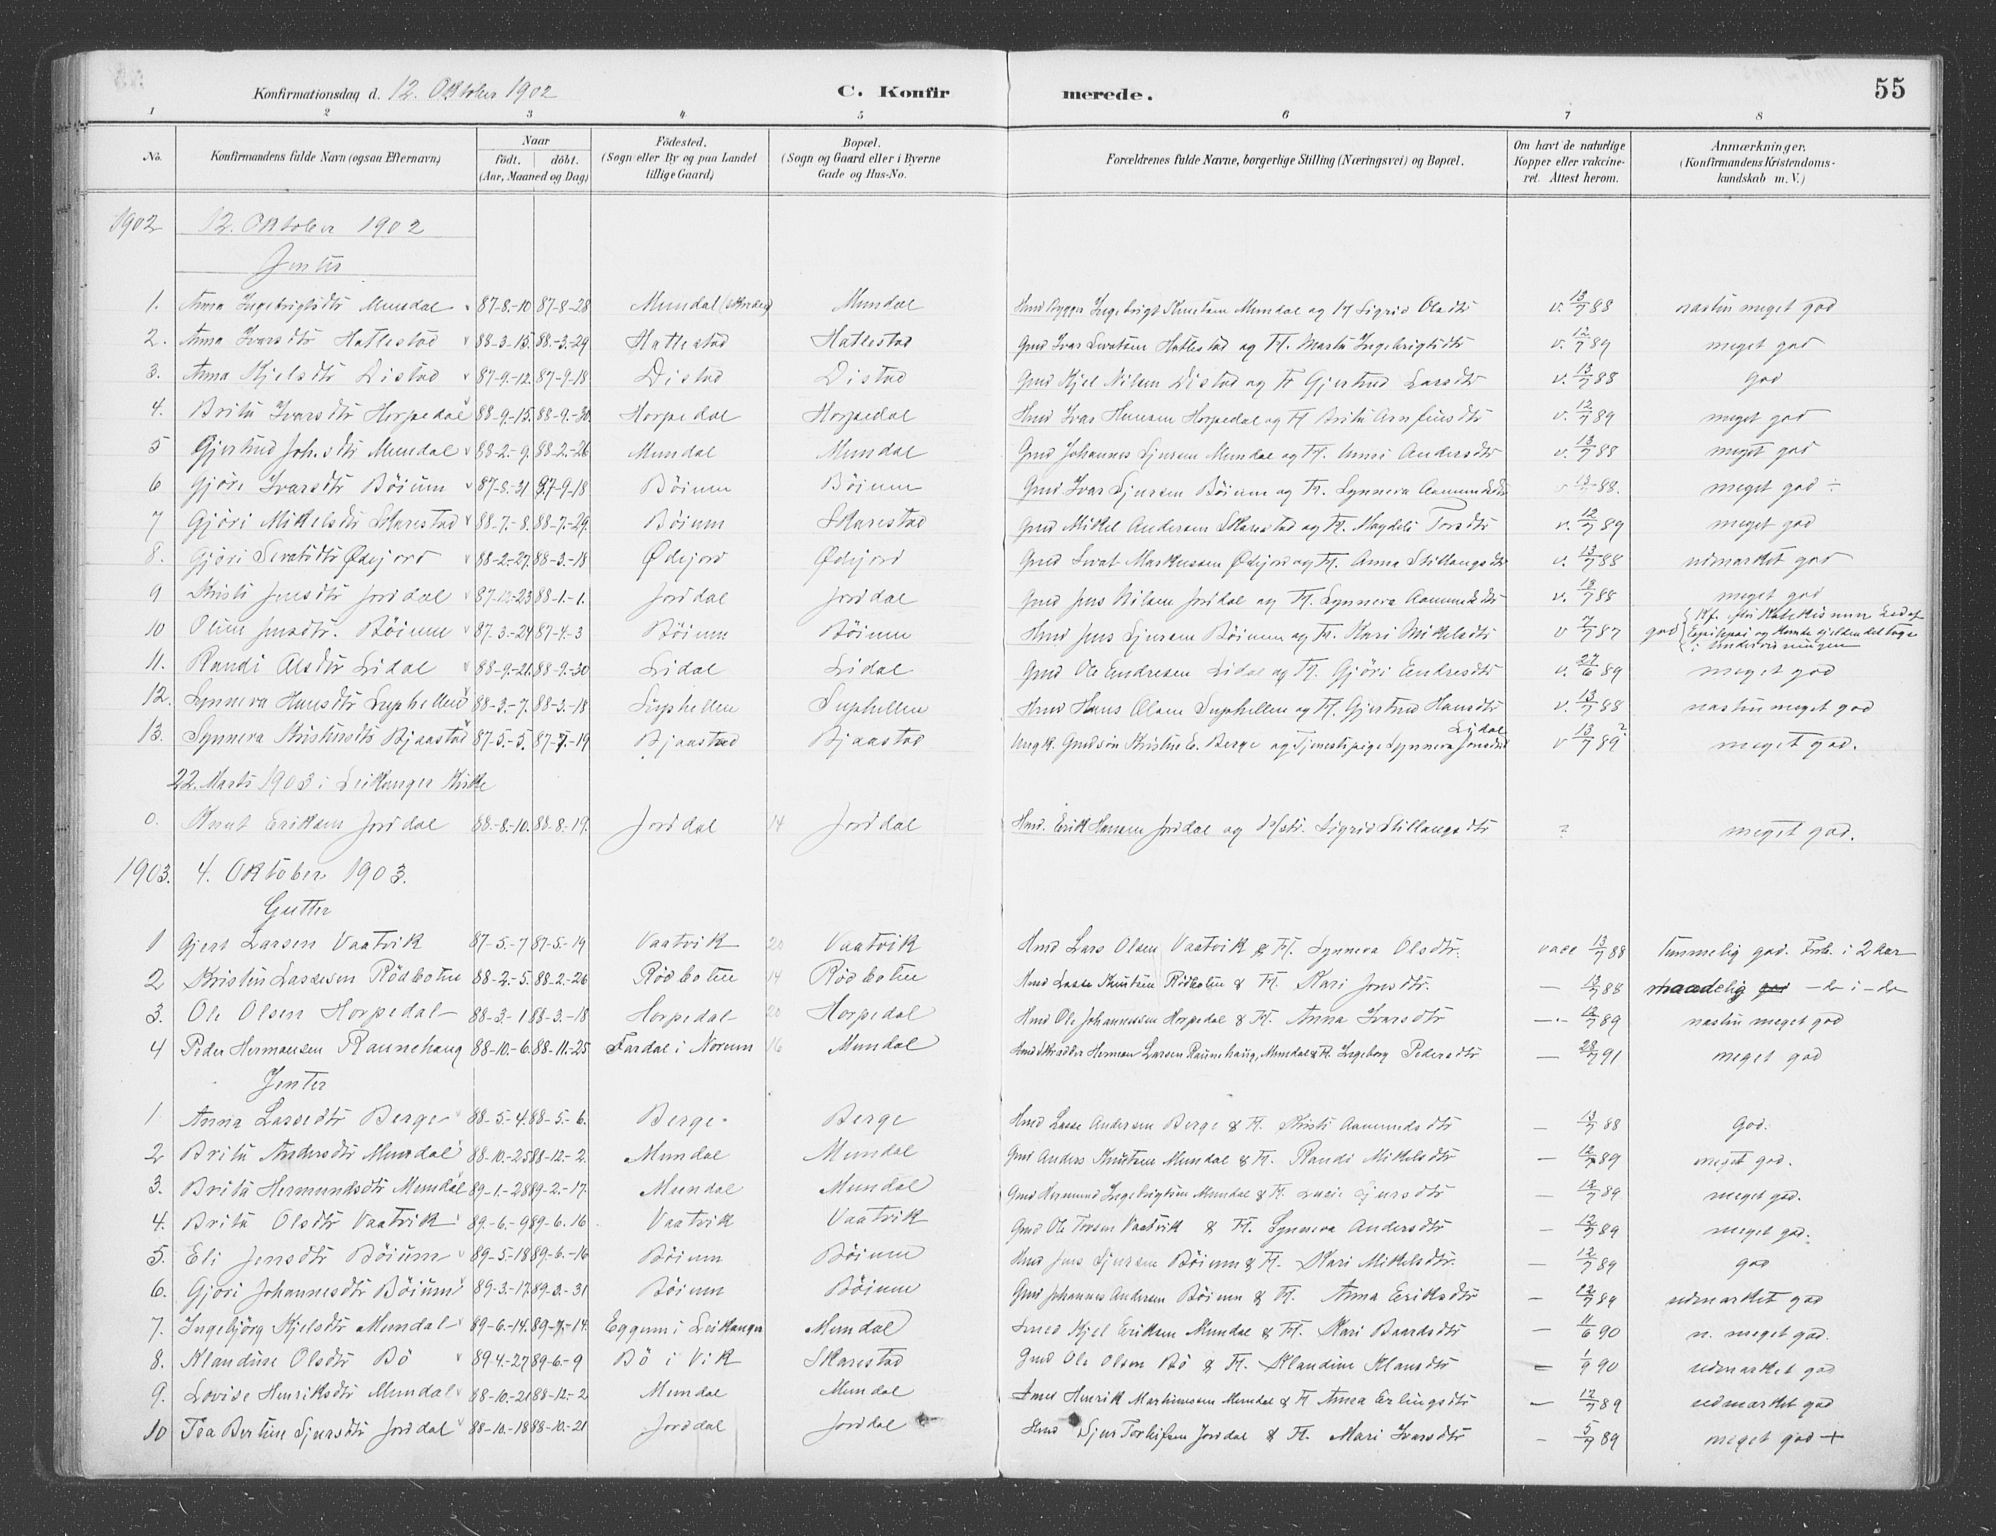 Konfirmationsdag d. 12. Oktober 1902 C. Konfirmerede. 55
1 2 3 4 5 6 7 8
No. Konfirmandens fulde Navn (ogsaa Efternavn) Naar födt. döbt. (Aar, Maaned og Dag) Födested. (Sogn eller By og paa Landet tillige Gaard) Bopæl. (Sogn og Gaard eller i Byerne Gade og Hus-No. Forældrenes fulde Navne, borgerlige Stilling (Næringsvei) og Bopæl. Om havt de naturlige Kopper eller vakcineret. Attest herom. Anmærkninger. (Konfirmandens Kristendomskundskab m. V.)
1902 12. Oktober 1902
Jenter
1. Anna Ingebrigtsdtr Mundal 87-8-10 87-8-28 Mundal Mundal Ingebrigt Knutsen Mundal og H Sigrid Olsdtr v. 13/7 88 næsten meget god
2. Anna Ivarsdtr Hatlestad 88-3-15. 88-3-29 Hatlestad Hatlestad Gmd Ivar Sevatsen Hatlestad og H. Marta Ingebrigtsdtr v. 12/7 89 meget god
3. Anna Kjelsdtr Distad 87-9-12. 87-9-18 Distad Distad Gmd Kjel Nilsen Distad og H Gjertrud Larsdtr v. 13/7 88 God
4. Brita Ivarsdtr Horpedal 88-9-15. 88-9-30 Horpedal Horpedal Hmd Ivar Hansen Horpedal og H Brita Arnfinsdtr v. 12/7 89 meget god
5 Gjertrud Johsdtr Mundal 88-2-9. 88-2-26 Mundal Mundal Gmd Johannes Sjursen Mundal og H. Unni Andersdtr v. 13/7 88 meget god
6 Gjöri Ivarsdtr Böium 87-8-21 87-9-18 Böium Böium Gmd Ivar Sjursen Böium og H. Synneva Aamundsdtr v 13/7 88. meget god ÷
7 Gjöri Mikelsdtr Skarestad 88-7-8. 88-7-29. Böium Skarestad Gmd Mikel Andersen Skarestad og H. Magdeli Torsdtr v. 12/7 89 meget god
8. Gjöri Sevatsdtr Ødejord 88-2-27. 88-3-18 Ødejord Ødejord Gmd Sevat Markussen Ødejord og H. Anna Stillaugsdtr v. 13/7 88 udmærket god
9 Kristi Jensdtr Jordal 87-12-23 88-1-1. Jordal Jordal Gmd Jens Nilsen Jordal og H. Synneva Aamundsdtr v. 13/7 88 meget god
10 Oline Jensdtr. Böium 87-3-24 87-4-3 Böium Böium Hmd Jens Sjursen Böium og H. Kari Mikelsdtr v 7/7 87 god
11. Randi Olsdtr Lidal 88-9-21 88-9-30 Lidal Lidal Gmd Ole Endresen Lidal og H. Gjöri Endresdtr v. 27/6 89 meget god
12. Synneva Hansdtr Suphellen 88-3-7. 88-3-18 Suphellen Suphellen Hmd Hans Olsen Suphellen og H. Gjertrud Hansdtr v. 13/7 88 næsten meget god
13. Synneva Kristensdtr Bjaastad 87-5-5. 87-5-19 Bjaastad Bjaastad Ungk. Gmdsön Kristen E. Berge og Tjenestepige Synneva Jensdtr Lidal v 13/7 89? meget god.
22. Marts 1903 i Leikanger Kirke
0. Knut Eriksen Jordal 88-8-10. 88-8-19. Jordal 14 Jordal Hmd. Erik Hansen Jordal og Sigrid Stillaugsdtr ? meget god.
1903. 4. Oktober 1903.
Gutter
1 Gjert Larsen Vaatvik 87-5-7 87-5-19 Vaatvik 20 Vaatvik Hmd Lars Olsen Vaatvik & H. Synneva Olsdtr. vacc 13/7 88 temmelig god. Forb. i 2 aar
2 Kristen Lassesen Rödbotn 88-2-5. 88-2-26 Rödbotn 14 Rödbotn Hmd Lasse Knutsen Rödbotn & H. Kari Jonsdtr. — 13/7 88 maadelig god —do i —do
3. Ole Olsen Horpedal 88-3-1 88-3-18 Horpedal 20 Horpedal Hmd Ole Johannessen Horpedal & H. Anna Ivarsdtr — 12/7 89 næsten meget god
4 Peder Hermansen Raunehaug 88-10-6. 88-11-25 Fardal i Norum 16 Mundal Herman Larsen Raunehaug, Mundal & H. Ingeborg Pedersdtr — 28/7 91 meget god
Jenter
1 Anna Lassedtr Berge 88-5-4. 88-5-6. Berge Berge Hmd Lasse Andersen Berge & H. Kristi Aamundsdtr — 13/7 88 God.
2 Brita Andersdtr Mundal 88-10-25 88-12-2. Mundal Mundal Gmd Anders Knutsen Mundal & H. Randi Mikelsdtr — 12/7 89 meget god.
3. Brita Hermundsdtr Mundal 89-1-28 89-2-17. Mundal Mundal Gmd Hermund Ingebrigtsen Mundal & H. Sjursdtr — 12/7 89 meget god.
4. Brita Olsdtr Vaatvik 89-6-9 89-6.16 Vaatvik Vaatvik Gmd Ole Vaatvik & H. Synneva Andersdtr — 12/7 89 meget god.
5. Eli Jensdtr Böium 89-5-18 89-6-16 Böium Böium Hmd Jens Sjursen Böium & H. Kari Mikelsdtr. — 12/7 89 god
6. Gjöri Johannesdtr Böium 89-3-17 89-3-31 Böium Böium Gmd Johannes Andersen Böium & H. Anna Eriksdtr — 12/7 89 udmærket god
7. Ingebjörg Kjelsdtr Mundal 89-6-14. 89-7-14. Eggum i Leikanger Mundal Kjel Eriksen Mundal & H. Kari Baardsdtr — 11/6 90 n. meget god.
8. Klaudine Olsdtr Bö 89-4-27 89-6-9 Bö i Vik Skarestad Gmd Ole Olsen Bö & H. Klaudine Klausdtr — 1/9 90 udmærket god
9. Lovise Henriksdtr Mundal 88-10-21 88-12-2 Mundal Mundal Henrik Markussen Mundal & H Anna Erlingsdtr — 12/7 89 udmærket god
10 Tea Bertine Sjursdtr Jordal 88-10-18 88-10-21 Jordal Jordal Hmd Sjur Torleifsen Jordal & H. Mari Ivarsdtr — 5/7 89 meget god +